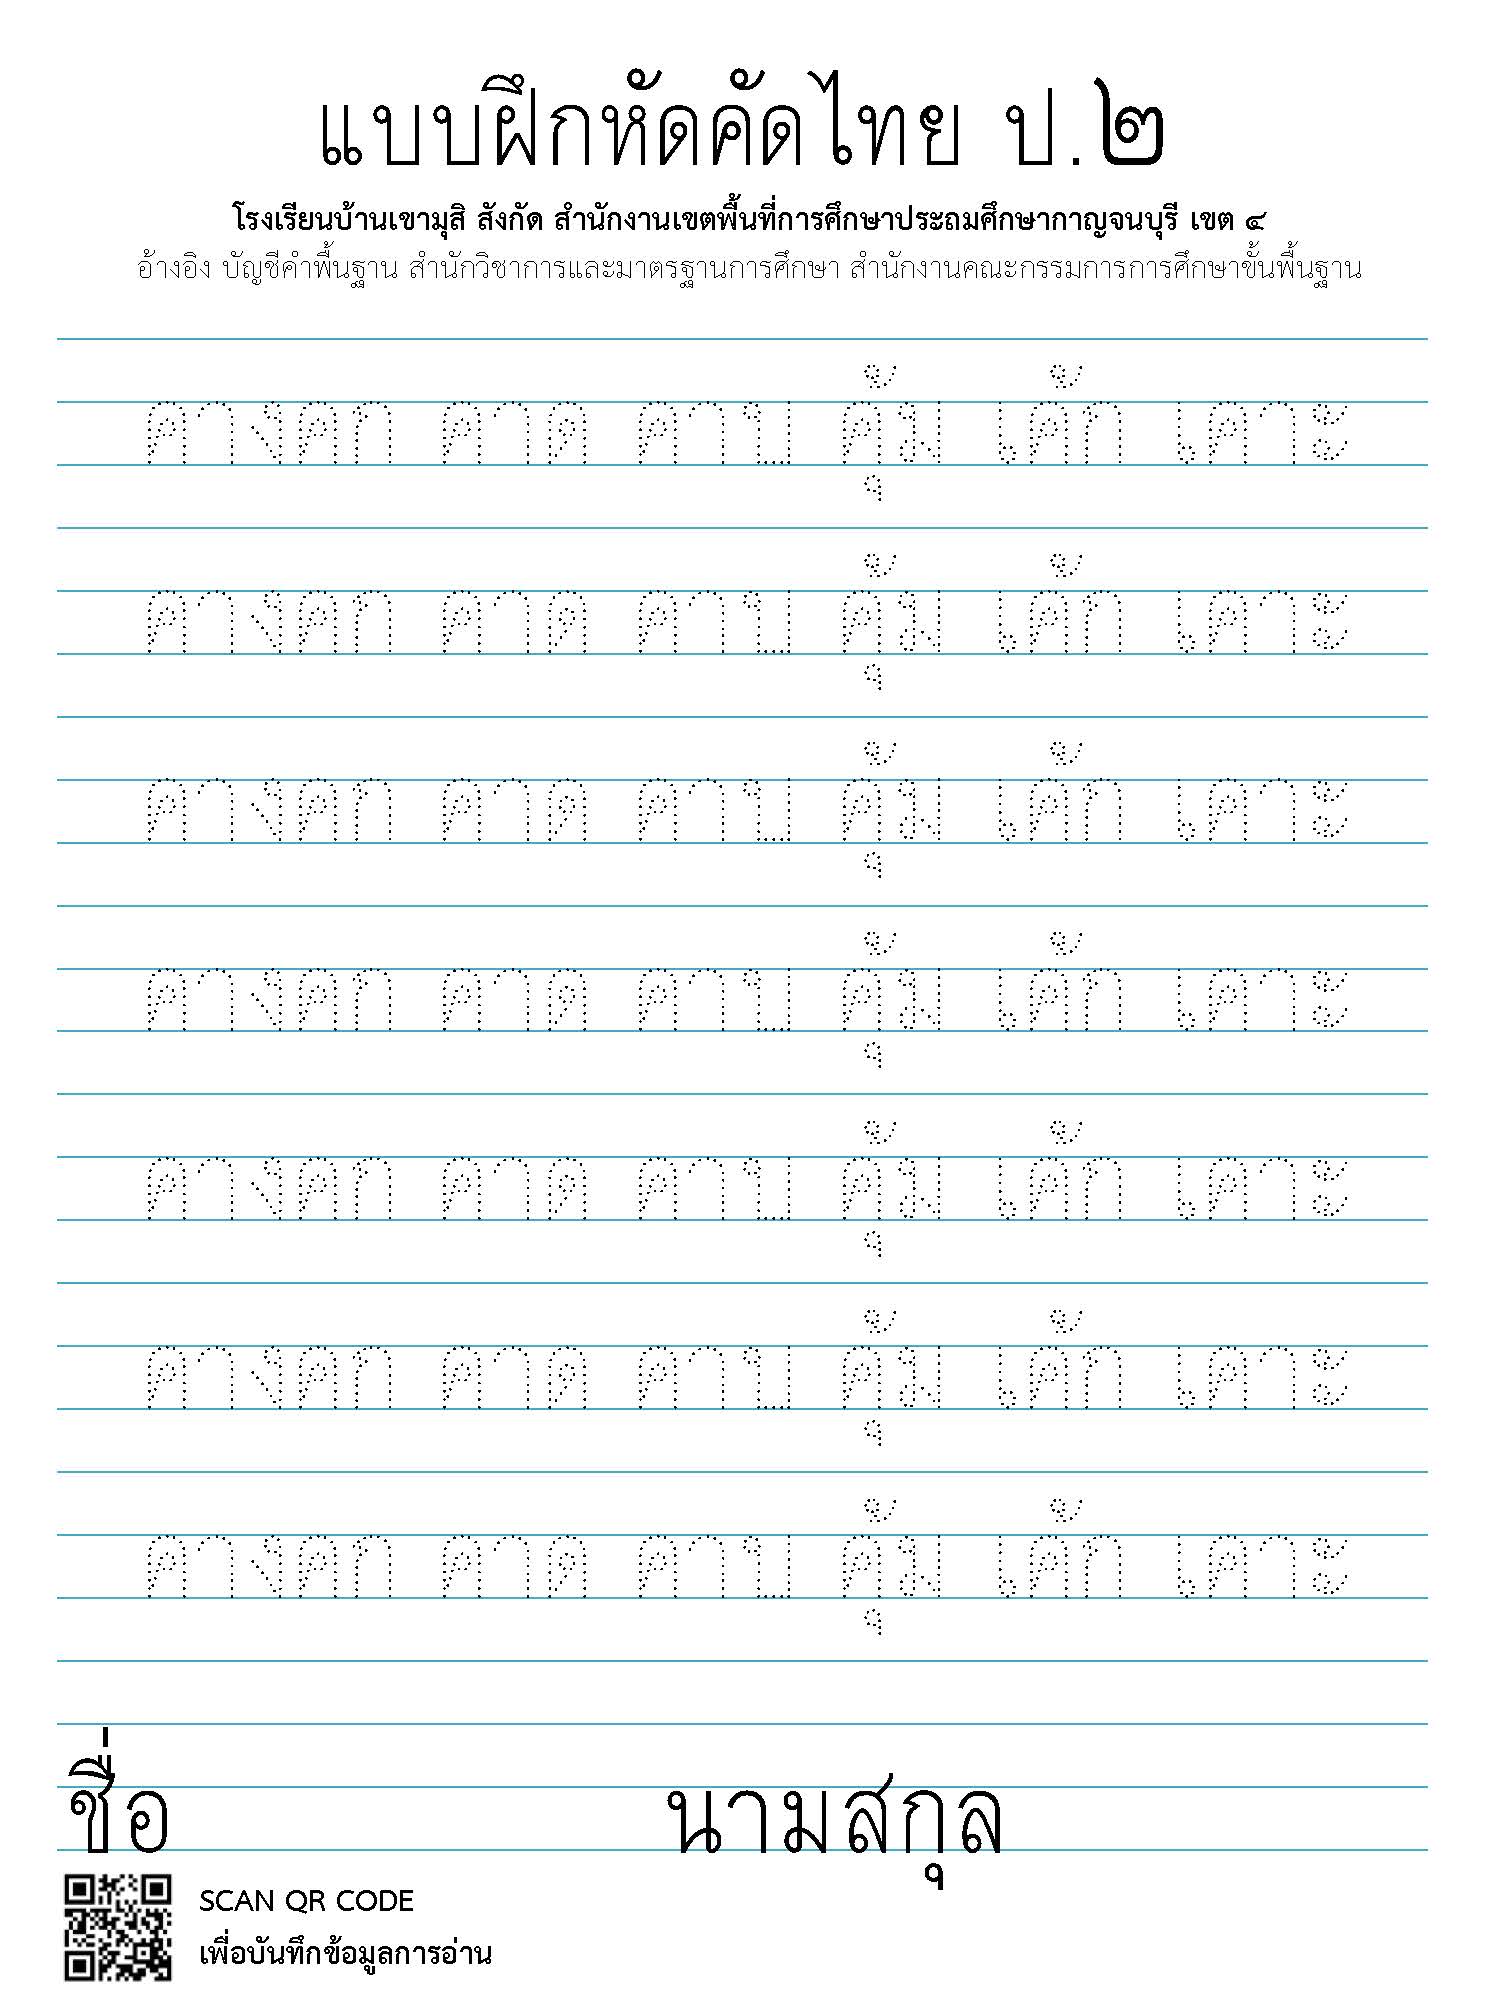 แบบฝึกหัดคัดไทย ป.๒
โรงเรียนบ้านเขามุสิ สังกัด สำนักงานเขตพื้นที่การศึกษาประถมศึกษากาญจนบุรี เขต ๔
อ้างอิง บัญชีคำพื้นฐาน สำนักวิชาการและมาตรฐานการศึกษา สำนักงานคณะกรรมการการศึกษาขั้นพื้นฐาน
คางคก คาด คาบ คุ้ม เค้ก เคาะ
คางคก คาด คาบ คุ้ม เค้ก เคาะ
คางคก คาด คาบ คุ้ม เค้ก เคาะ
คางคก คาด คาบ คุ้ม เค้ก เคาะ
คางคก คาด คาบ คุ้ม เค้ก เคาะ
คางคก คาด คาบ คุ้ม เค้ก เคาะ
คางคก คาด คาบ คุ้ม เค้ก เคาะ
ชื่อ นามสกุล
SCAN QR CODE
เพื่อบันทึกข้อมูลการอ่าน